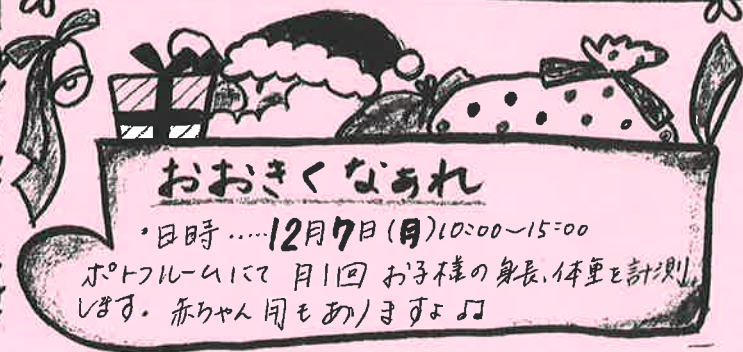 おおきくなあれ
・日時.....12月7日(月)10:00~15:00
ポトフルームにて 月1回 お子様の身長、体重を計測
します。赤ちゃん用もありますよ♫